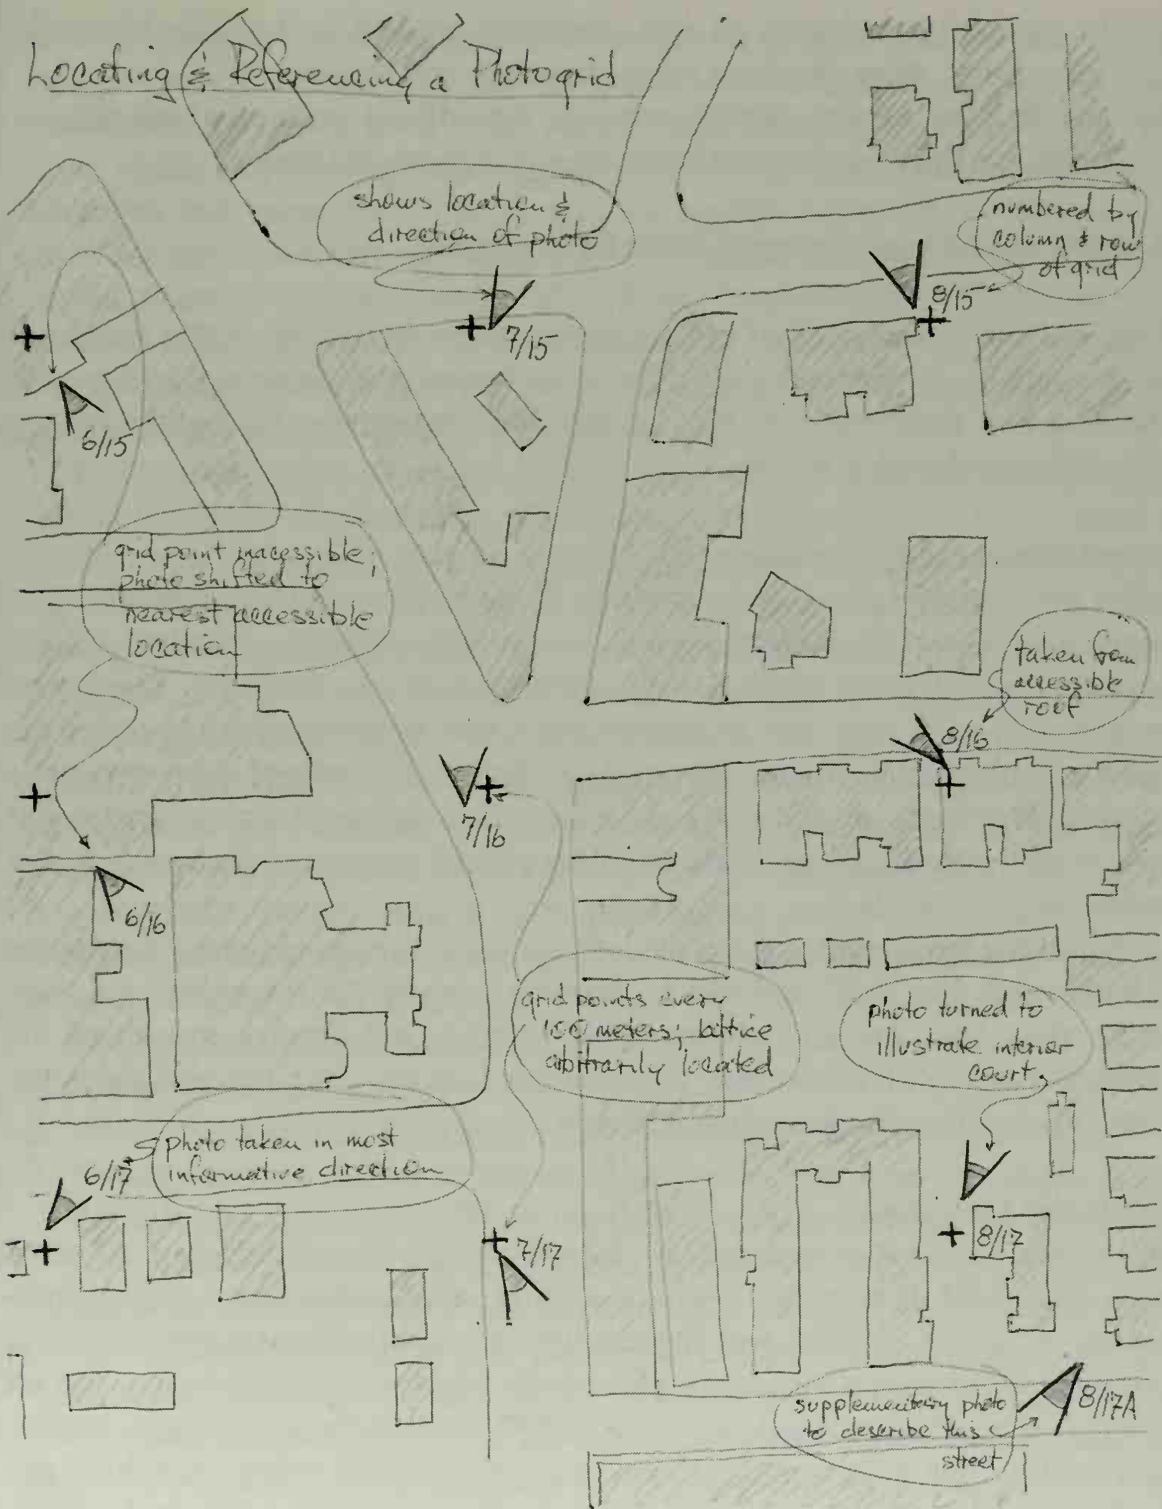 Locating & Referencing a Photogrid
shows location &
direction of photo
numbered by
column & row
of grid
8/15
7/15
6/15
grid point inacessible;
photo shifted to
nearest accessible
location
taken from
accessible
roof
8/16
7/16
6/16
grid points every
100 meters; lattice
arbitrarily located
photo turned to
illustrate interior
court
photo taken in most
informative direction
6/17
7/17
8/17
supplementary photo
to describe this
street
8/17A